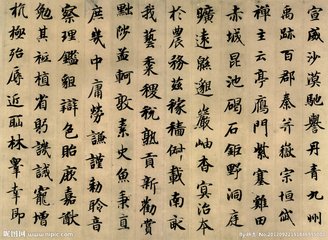 宣威沙漠馳譽丹青九州
禹跡百郡秦并嶽宗恒岱
禪主云亭鴈門紫塞雞田
赤城昆池碣石鉅野洞庭
曠遠緜邈巖岫杳冥治本
於農務茲稼穡俶載南畝
我藝黍稷稅熟貢新勸賞
黜陟孟軻敦素史魚秉直
庶幾中庸勞謙謹勑聆音
察理鑑貌辯色貽厥嘉猷
勉其祗植省躬譏誡寵增
抗極殆辱近恥林皋幸即
昵图网 www.nipic.com